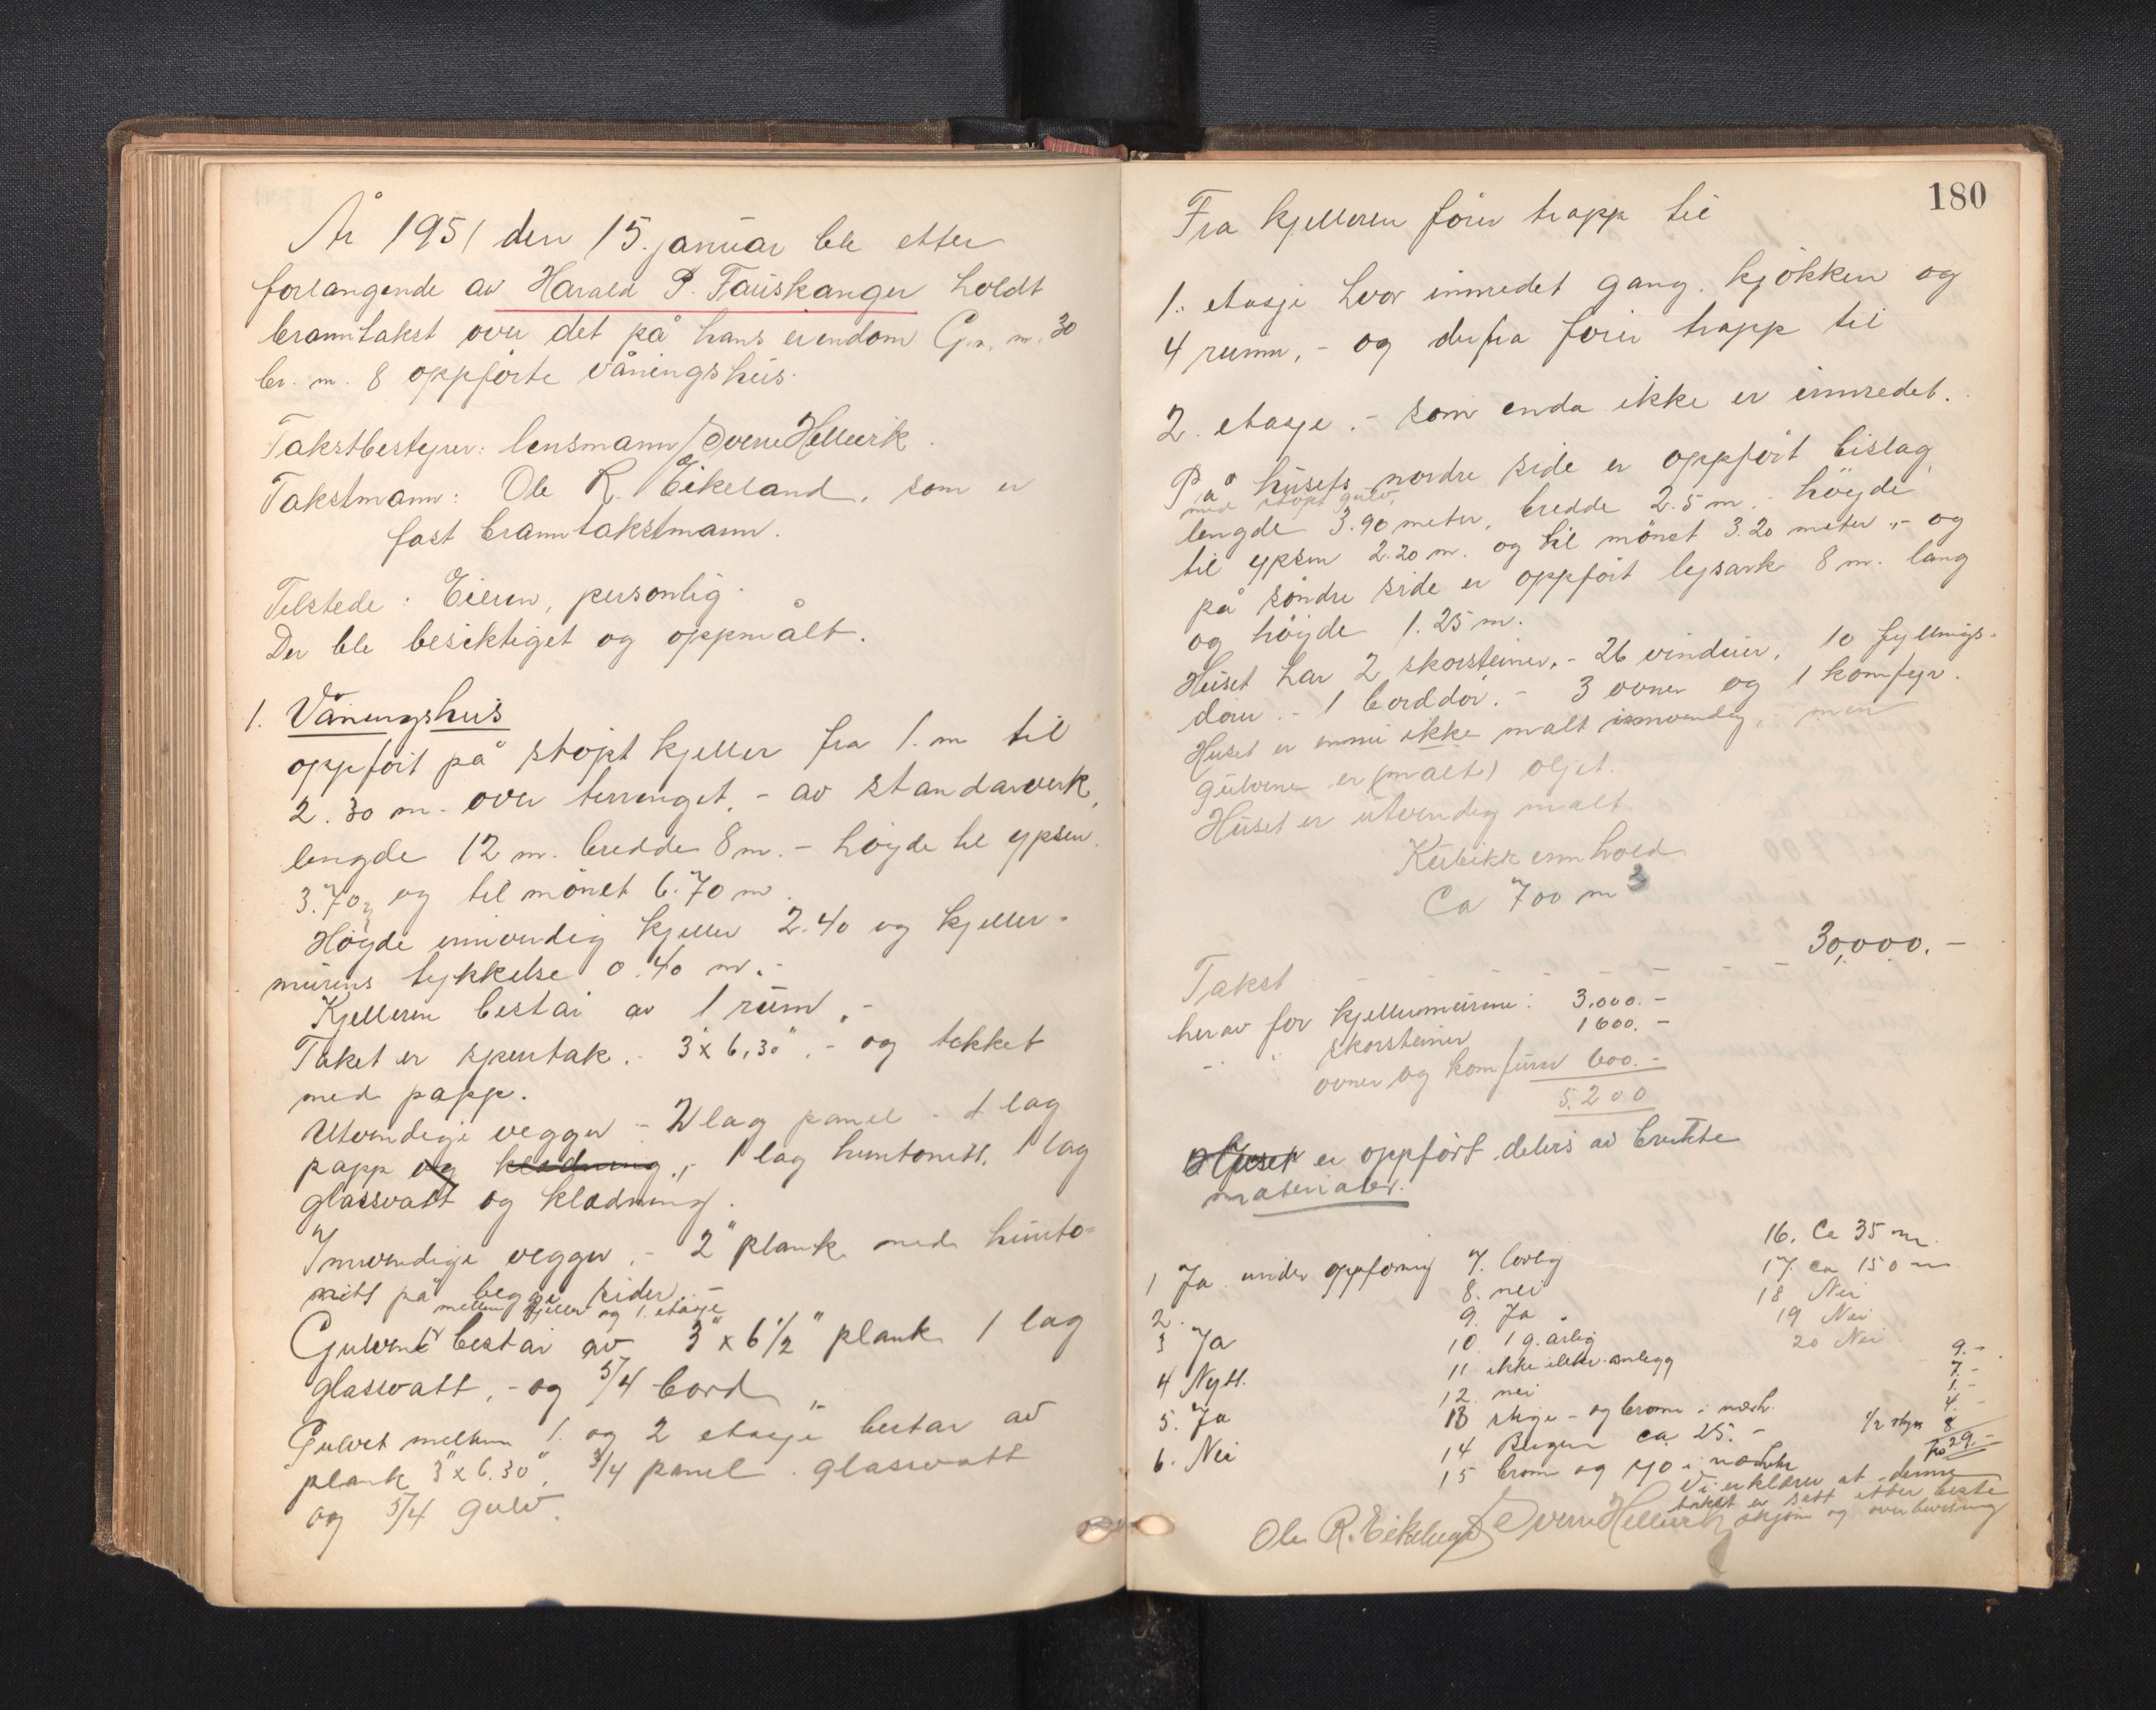 År 1951 den 15. januar ble etter
forlangende av Harald P. Fauskanger holdt
branntakst over det på hans eiendom G.n. nr. 30
br. nr. 8 oppförte våningshus.
Takstbestyrer: lensmann Sverre Hellesvik.
Takstmann: Ole R. Eikeland, som er
fast branntakstmann.
Tilstede: Eieren, personlig.
Der ble besiktiget og oppmålt.
1. Våningshus
oppfört på stöpt kjeller fra 1. m til
2.30 m. over terrenget, - av standarverk,
lengde 12 m. bredde 8 m. - höyde til ypsen
3.70, og til mönet 6.70 m.
Höyde innvendig kjeller 2.40 og kjeller-
murens tykkelse 0.40 m. -
Kjelleren består av 1 rum. -
Taket er sperrtak. - 3" x 6,30". - og tekket
med papp.
Utvendige vegger - 2 lag panel - 1 lag
papp og kledning, - 1 lag huntonitt, 1 lag
glassvatt og kledning.
Innvendige vegger. - 2" plank med hunto-
nitt på begge sider. -
mellem kjeller og 1. etasje
Gulvene består av 3" x 6 1/2" plank 1 lag
glassvatt, - og 5/4" bord.
Gulvet mellem 1. og 2 etasje bestar av
plank 3" x 6.30", 3/4 panel. glassvatt
og 5/4 gulv.
180
Fra kjelleren förer trapp til
1. etasje hvor innredet gang, kjökken og
4 rumm, - og derfra förer trapp til
2. etasje. - som enda ikke er innredet.
På husets nordre side er oppfört bislag
med stöpt gulv,
lengde 3.90 meter, bredde 2.5 m. höyde
til ypsen 2.20 m. og til mönet 3.20 meter, - og
på söndre side er oppfört lysark 8 m. lang
og höyde 1.25 m.
Huset har 2 skorsteiner, - 26 vinduer, 10 fyllings-
dörer. - 1 borddör. - 3 ovner og 1 komfyr.
Huset er ennu ikke malt innvendig, - men
gulvene er (malt) oljet.
Huset er utvendig malt.
Kubikk innhold
Ca 700 m3
Takst - - - - - - - 30,000. -
herav for kjellermurene: 3.000. -
- " skorsteiner 1600. -
ovner og komfurer 600. -
5.200
Huset er oppfört delvis av brukte
materialer.
1 Ja under oppföring
2.
3 Ja
4 Nytt.
5. Ja
6. Nei
7. lovlig
8. nei
9. Ja
10 1 g. årlig
11 ikke elektr. anlegg
12. nei
13 stige - og brann i nærh.
14 Bergen ca 25. -
15 brann og i nærheten
16. Ca 35 m.
17. ca 150 m
18 Nei
19 Nei
20 Nei
9. -
7. -
1. -
4. -
1/2 8.
kr 29. -
Vi erklærer at denne
takst er satt efter beste
skjönn og overbevisning
Ole R. Eikeland Sverre Hellesvik